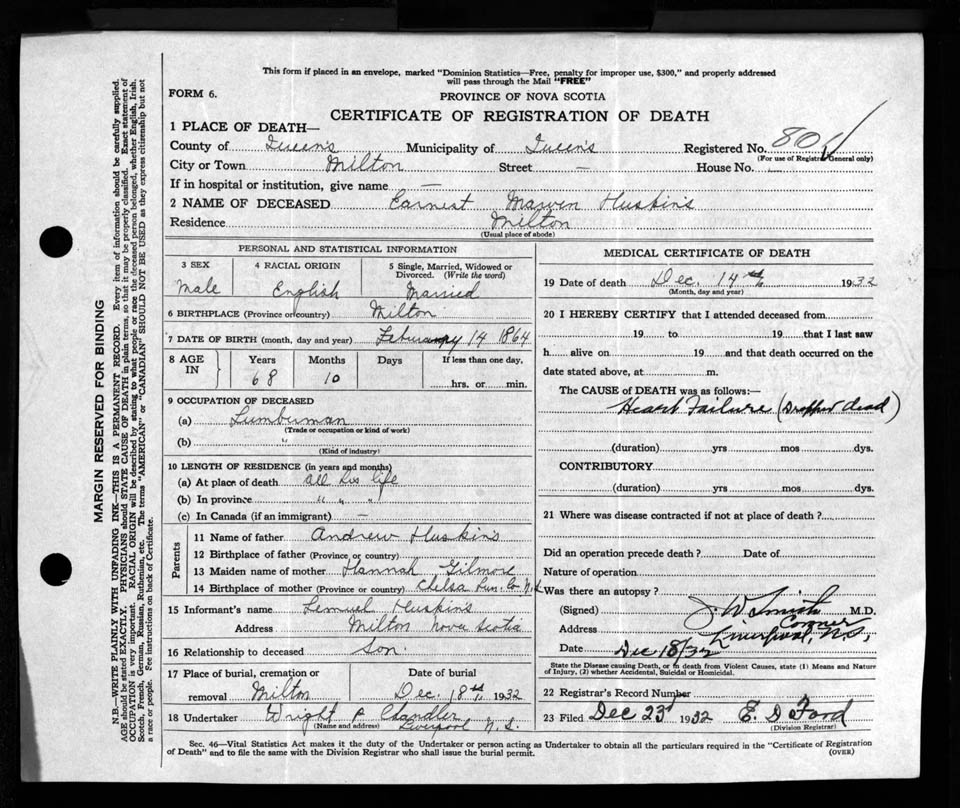 This form if placed in an envelope, marked "Dominion Statistics—Free, penalty for improper use, $300," and properly addressed
will pass through the Mail "FREE"
FORM 6.
PROVINCE OF NOVA SCOTIA
CERTIFICATE OF REGISTRATION OF DEATH
1 PLACE OF DEATH—
County of Queen's Municipality of Queen's Registered No. 80
(For use of Registrar General only)
City or Town Milton Street — House No. —
If in hospital or institution, give name —
2 NAME OF DECEASED Earnest Marven Huskins
Residence Milton
(Usual place of abode)
PERSONAL AND STATISTICAL INFORMATION
3 SEX 4 RACIAL ORIGIN 5 Single, Married, Widowed or
Divorced. (Write the word)
Male English Married
6 BIRTHPLACE (Province or country) Milton
7 DATE OF BIRTH (month, day and year) Feburary 14 1864
8 AGE IN Years Months Days If less than one day,
68 10 hrs. or min.
9 OCCUPATION OF DECEASED
(a) Lumberman
(Trade or occupation or kind of work)
(b) "
(Kind of industry)
10 LENGTH OF RESIDENCE (in years and months)
(a) At place of death all his life
(b) In province " " "
(c) In Canada (if an immigrant) —
Parents
11 Name of father Andrew Huskins
12 Birthplace of father (Province or country)
13 Maiden name of mother Hannah Gilmore
14 Birthplace of mother (Province or country) Chelsa Lun. Co N.S
15 Informant's name Lemuel Huskins
Address Milton Nova Scotia
16 Relationship to deceased Son.
17 Place of burial, cremation or Date of burial
removal Milton Dec. 18th, 1932
18 Undertaker Wright & Chandler
(Name and address) Liverpool N.S.
MEDICAL CERTIFICATE OF DEATH
19 Date of death Dec. 14th 1932
(Month, day and year)
20 I HEREBY CERTIFY that I attended deceased from
19 to 19 that I last saw
h alive on 19 and that death occurred on the
date stated above, at m.
The CAUSE OF DEATH was as follows:—
Heart Failure (Dropped dead)
(duration) yrs mos dys.
CONTRIBUTORY
(duration) yrs mos dys.
21 Where was disease contracted if not at place of death?
Did an operation precede death? Date of
Nature of operation
Was there an autopsy?
(Signed) J. W. Smith M.D.
Coroner
Address Liverpool, N.S.
Date Dec 18/32
State the Disease causing Death, or in death from Violent Causes, state (1) Means and Nature
of Injury, (2) whether Accidental, Suicidal or Homicidal.
22 Registrar's Record Number
23 Filed Dec 23d 1932 E. D Ford
(Division Registrar)
Sec. 46—Vital Statistics Act makes it the duty of the Undertaker or person acting as Undertaker to obtain all the particulars required in the "Certificate of Registration
of Death" and to file the same with the Division Registrar who shall issue the burial permit.
(OVER)
MARGIN RESERVED FOR BINDING
N.B.—WRITE PLAINLY WITH UNFADING INK—THIS IS A PERMANENT RECORD. Every item of information should be carefully supplied.
AGE should be stated EXACTLY. PHYSICIANS should STATE CAUSE OF DEATH in plain terms, so that it may be properly classified. Exact statement of
OCCUPATION is very important. RACIAL ORIGIN will be described by stating to what people or race the deceased person belonged, whether English, Irish,
Scotch, French, German, Russian, Ruthenian, etc. The terms "AMERICAN" or "CANADIAN" SHOULD NOT BE USED as they express citizenship but not
a race or people. See instructions on back of Certificate.